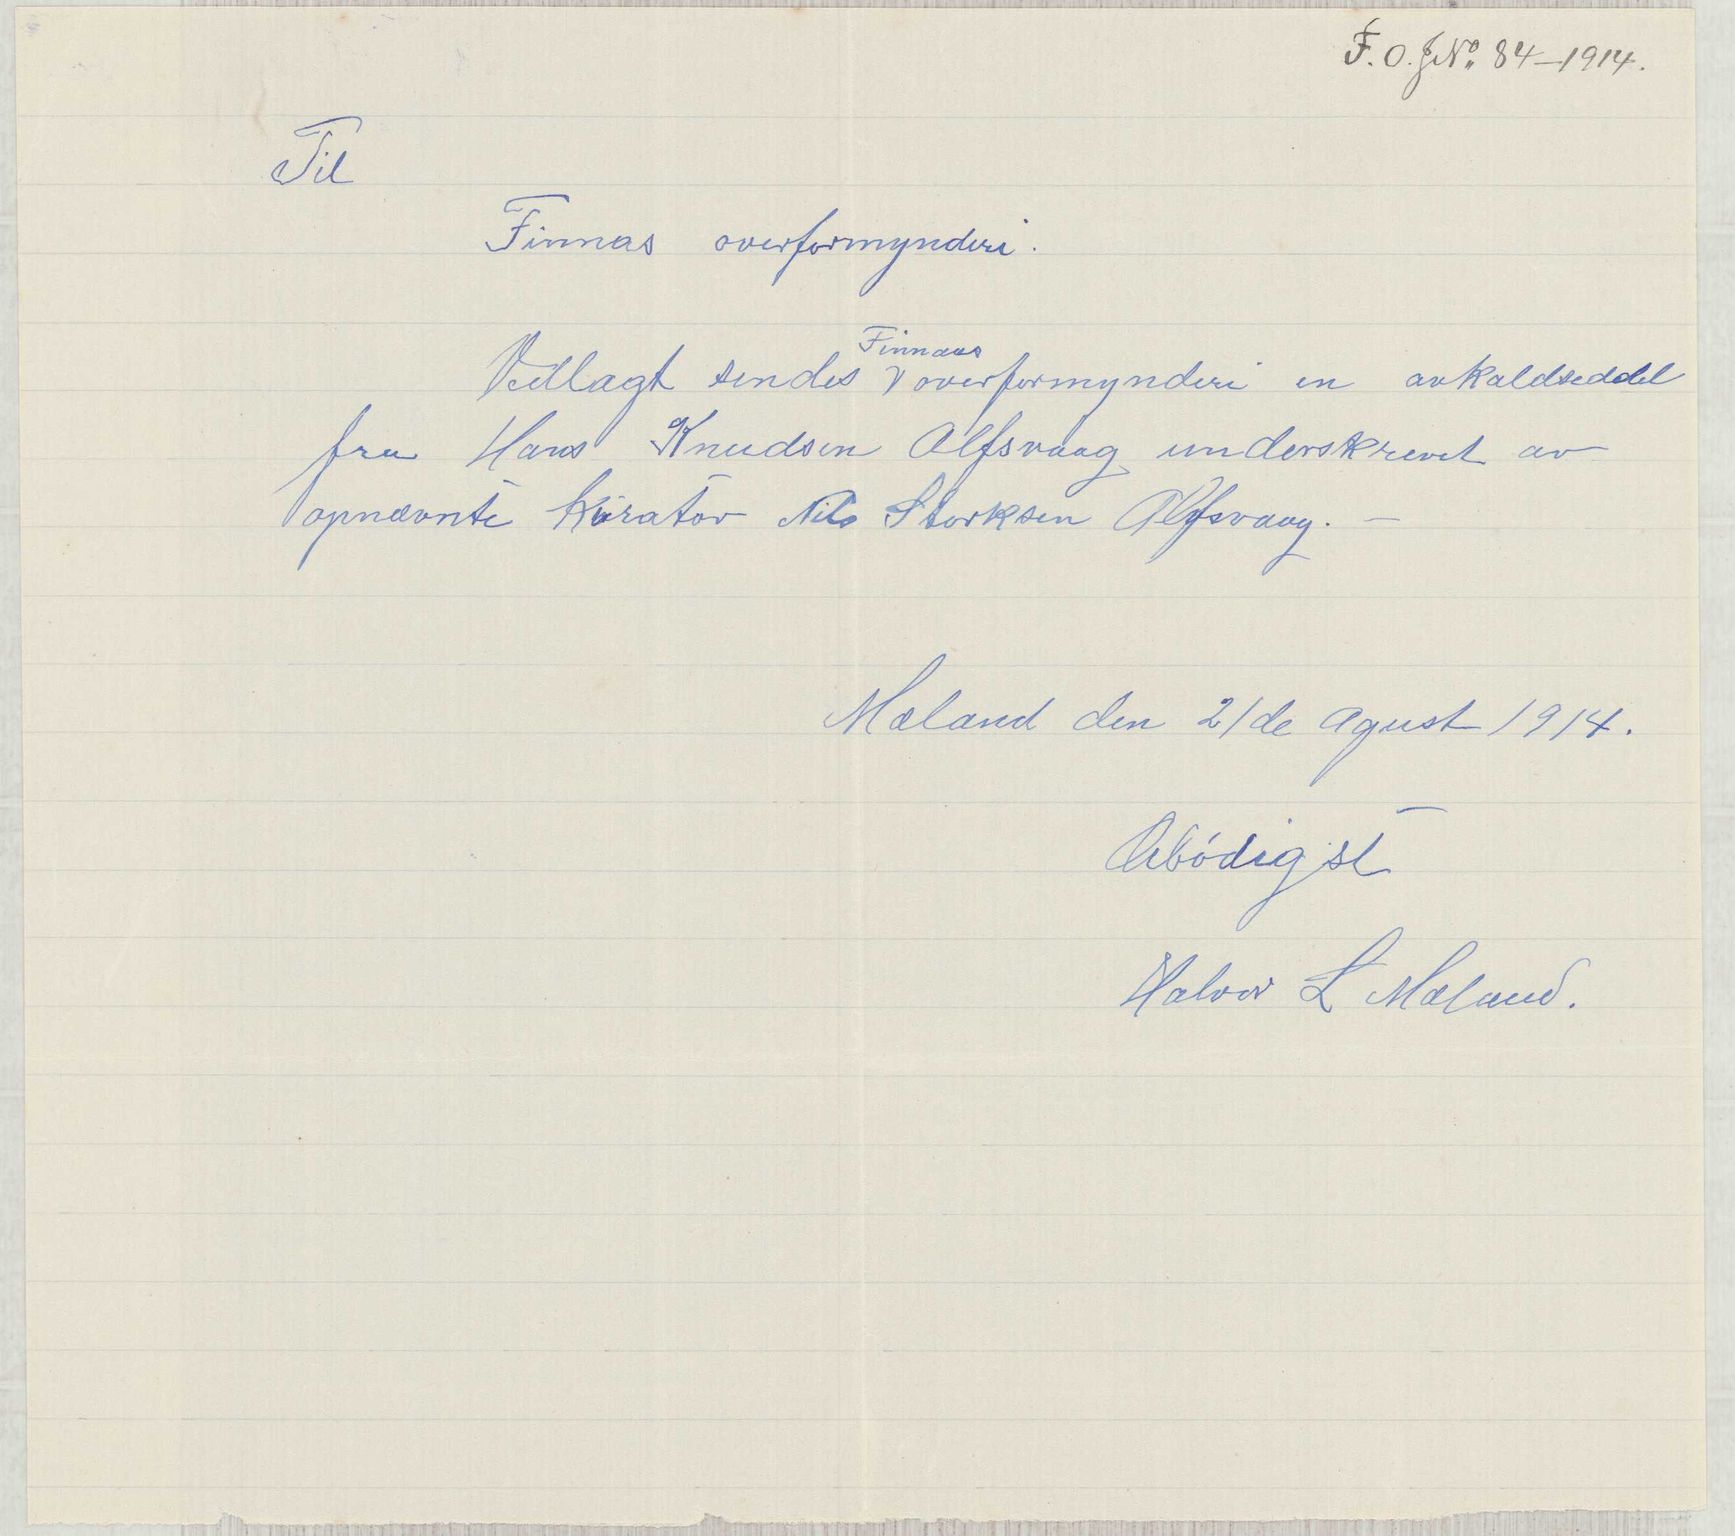 F. O. J№. 84-1914.
Til
Finnas overformynderi.
Finnaas
Vedlagt sendes V overformynderi en avkaldseddel
fra Hans Knudsen Alfsvaag underskrevet av
opnævnte kurator Nils Storksen Alfsvaag. —
Mæland den 21de Agust 1914.
Ærbödigst
Halvor L Mæland.